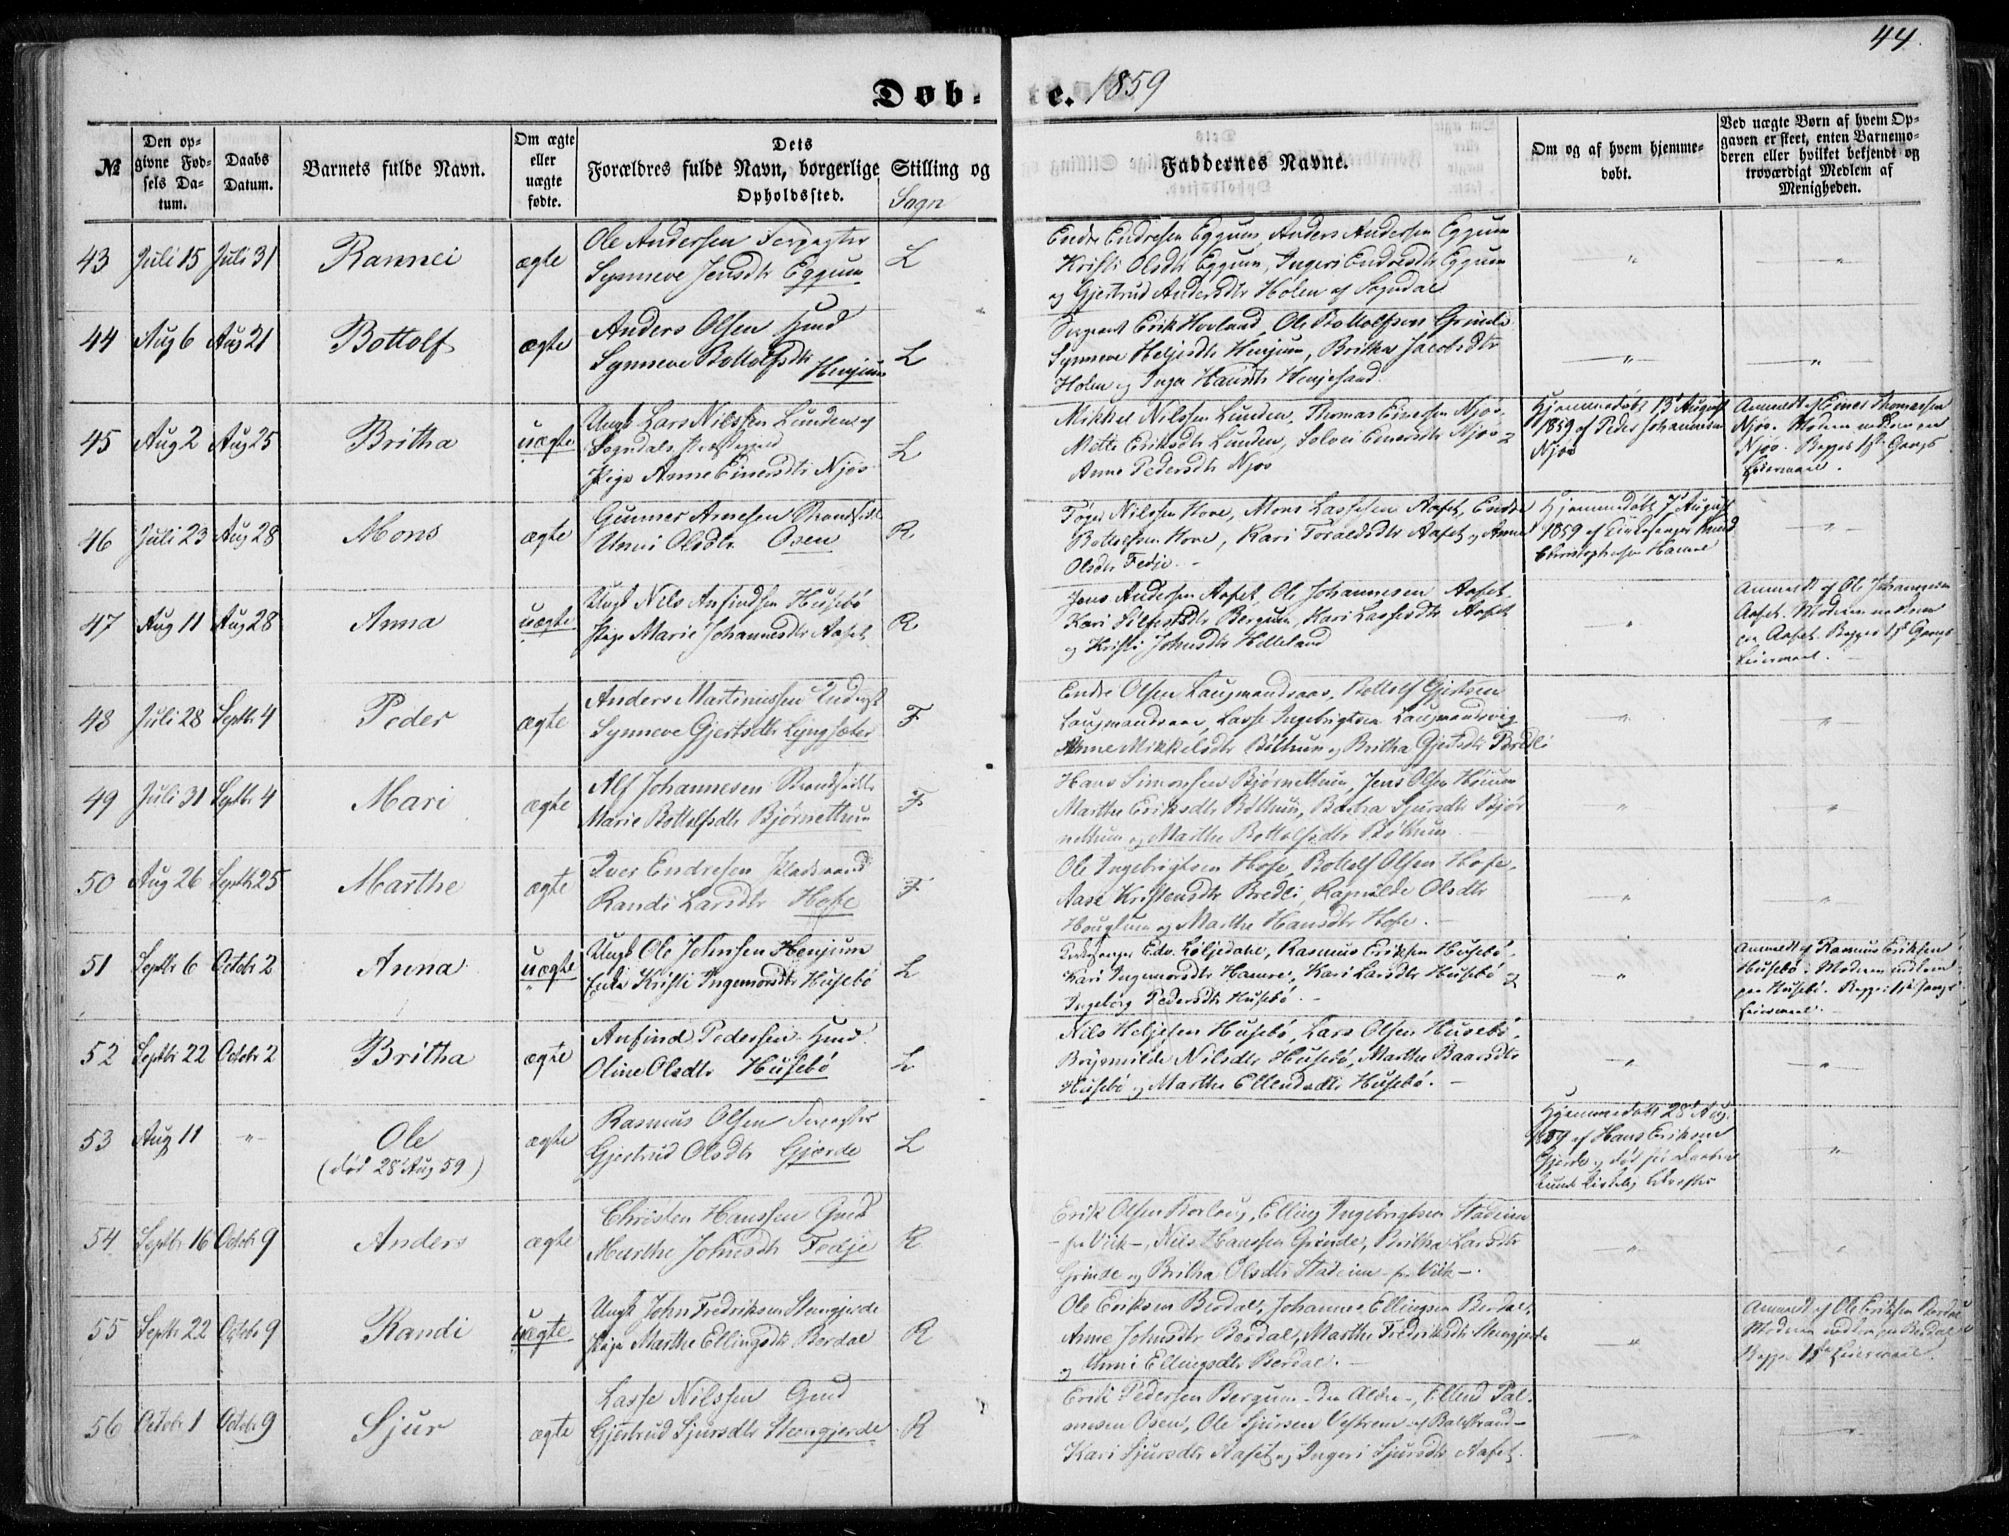 44.
Døbte. 1859
№
Den opgivne Fødsels Datum.
Daabs Datum.
Barnets fulde Navn.
Om ægte eller uægte fødte.
Dets Forældres fulde Navn, borgerlige Stilling og Opholdssted.
Sogn
Faddernes Navne.
Om og af hvem hjemmedøbt.
Ved uægte Børn af hvem Opgaven er skeet, enten Barnemoderen eller hvilket bekjendt og troværdigt Medlem af Menigheden.
43 Juli 15 Juli 31 Rannei ægte
Ole Andersen Forpagter
Synneve Jensdtr Eggum
L
Endre Endresen Eggum, Anders Andersen Eggum
Kristi Olsdtr Eggum, Ingeri Endresdtr Eggum
og Gjertrud Andersdtr Holen af Sogndal
44 Aug 6 Aug 21 Bottolf ægte
Anders Olsen Hmd
Synneve Bottolfsdtr
Henjum
L
Sergeant Erik Hovland, Ole Bottolfsen Grinde
Synneve Heljesdtr Henjum, Britha Jacobsdtr
Holen og Inger Hansdtr Henjesand.
45 Aug 2 Aug 25 Britha uægte
Ungk Lars Nilssen Lunden af
Sogndals Præstegjeld
Pige Anne Einersdtr Njøs
L
Mikkel Nilssen Lunden, Thomas Einersen Njøs,
Mette Eriksdtr Lunden, Solvei Einersdtr Njøs og
Anne Pedersdtr Njøs
Hjemmedøbt 13 August
1859 af Peder Johannesen
Njøs
Anmeldt af Einer Thomassen
Njøs. Moderen
Njøs. Begges 1ste Gangs
Leiermaal.
46 Juli 23 Aug 28 Mons ægte
Gunner Arnesen Strandsidd
Unni Olsdtr Osen
R
Nilssen Hove, Mons Lassesen Aafet, Endre
Bottolfsen Hove, Kari Toraldsdtr Aafet og Anne
Olsdtr Fedje.
Hjemmedøbt 7 August
1859 af Kirkesanger Knud
Christophersen Hamre
47 Aug 11 Aug 28 Anna uægte
Ungk Nils Anfindsen Husebø
Pige Marie Johannesdtr Aafet
R
Jens Andersen Aafet, Ole Johannesen Aafet,
Kari Bergum, Kari Lassesdtr Aafet
og Kristi Johnsdtr Helleland
Anmeldt af Ole Johannesen
Aafet. Moderen
paa Aafet. Begges 1ste Gangs
Leiermaal.
48 Juli 28 Septbr 4 Peder ægte
Anders Martinussen
Synneve Gjertsdtr Lyngsæter
F
Endre Olsen Laugmandsaas, Bottolf Gjertsen
Laugmandsaas, Lasse Ingebrigtsen Laugmandsvig
Anne Mikkelsdtr Bøthun og Britha Gjertsdtr Bredli
49 Juli 31 Septbr 4 Mari ægte
Alf Johannesen Strandsidder
Marie Bottolfsdtr Bjørnettun
F
Hans Simonsen Bjørnettun, Jens Olsen Høium
Marthe Eriksdtr Bøthun, Barbra Sjursdtr Bjør-
nettun og Marthe Bottolfsdtr Bøthun
50 Aug 26 Septbr 25 Marthe ægte
Iver Endresen Pladsmand
Randi Larsdtr Hofe
F
Ole Ingebrigtsen Hofe, Bottolf Olsen Hofe,
Aase Kristensdtr Bredli, Ragnilde Olsdtr
Houglum og Marthe Hansdtr Hofe.
51 Septbr 6 Octobr 2 Anna uægte
Ungk Ole Johnsen Henjum
Enke Kristi Ingemorsdtr Husebø
L
Kirkesanger Edv. Løljedahl, Rasmus Eriksen Husebø,
Kari Ingemorsdtr Hamre, Kari Larsdtr Husebø og
Ingeborg Pedersdtr Husebø.
Anmeldt af Rasmus Eriksen
Husebø. Moderen
paa Husebø. Begges 1ste Gangs
Leiermaal.
52 Septbr 22 Octobr 2 Britha ægte
Anfind Pedersen Hmd.
Oline Olsdtr Husebø
L
Nils Heljesen Husebø, Lars Olsen Husebø,
Brynnilde Nilsdtr Husebø, Marthe Baarsdtr
Husebø og Marthe Ellendsdtr Husebø.
53 Aug 11 Ole ægte
(død 28 Aug 59)
Rasmus Olsen Forpagter
Gjertrud Olsdtr Gjærde
L
Hjemmedøbt 28 Aug.
1859 af Hans Eriksen
Gjerde og død før Daaben
kunde kirkelig bekræftes
54 Septbr 16 Octobr 9 Anders ægte
Christen Hanssen Gmd
Marthe Johnsdtr Fedje
R
Erik Olsen Borlaug, Elling Ingebrigtsen Stadeim
- fra Vik -, Nils Hanssen Grinde, Britha Larsdtr
Grinde og Britha Olsdtr Stadeim - fra Vik -.
55 Septbr 22 Octobr 9 Randi uægte
Ungk John Fredriksen Stenjerde
Pige Marthe Ellingsdtr Berdal
R
Ole Eriksen Berdal, Johannes Ellingsen Berdal,
Anne Johnsdtr Berdal, Marthe Fredriksdtr Stengjerde
og Unni Ellingsdtr Berdal.
Anmeldt af Ole Eriksen Berdal
Moderen Berdal
Begges 1ste Leiermaal.
56 Octobr 1 Octobr 9 Sjur ægte
Lasse Nilssen Gmd
Gjertrud Sjursdtr Stengjerde
R
Erik Pedersen Bergum - den Ældre -, Ellend Pal-
mesen Osen, Ole Sjursen Vestrem af Balestrand -
Kari Sjursdtr Aafet og Ingeri Sjursdtr Aafet.